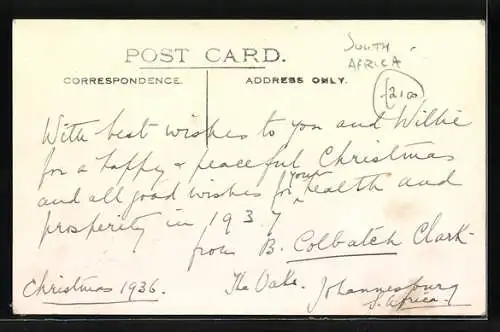 POST CARD.
SOUTH
AFRICA
CORRESPONDENCE.
ADDRESS ONLY.
With best wishes to you and Willie
for a happy & peaceful Christmas
and all good wishes for your health and
prosperity in 1937
from B. Colbatch Clark
Christmas 1936.
The Oaks.
Johannesburg
S. Africa.